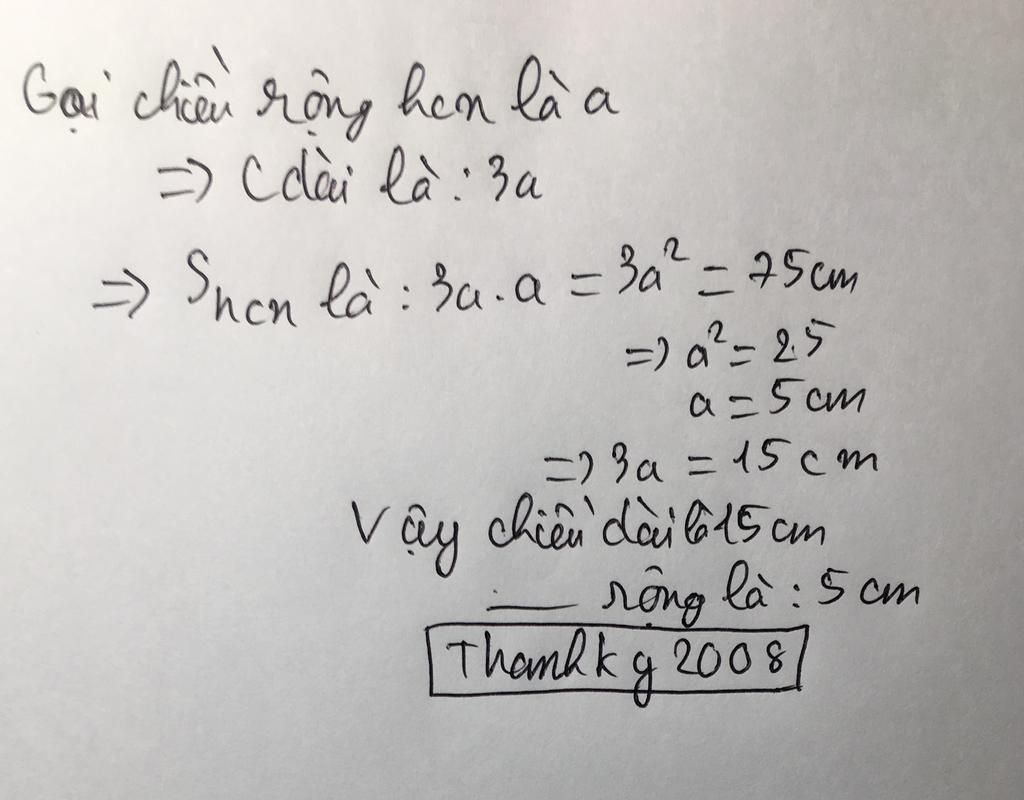 Gọi chiều rộng hcn là a
=> C dài là : 3a
=> Shcn là : 3a . a = 3a² = 75cm
=> a² = 25
a = 5 cm
=> 3a = 15 cm
Vậy chiều dài là 15 cm
___ rộng là : 5 cm
Thanhkg2008